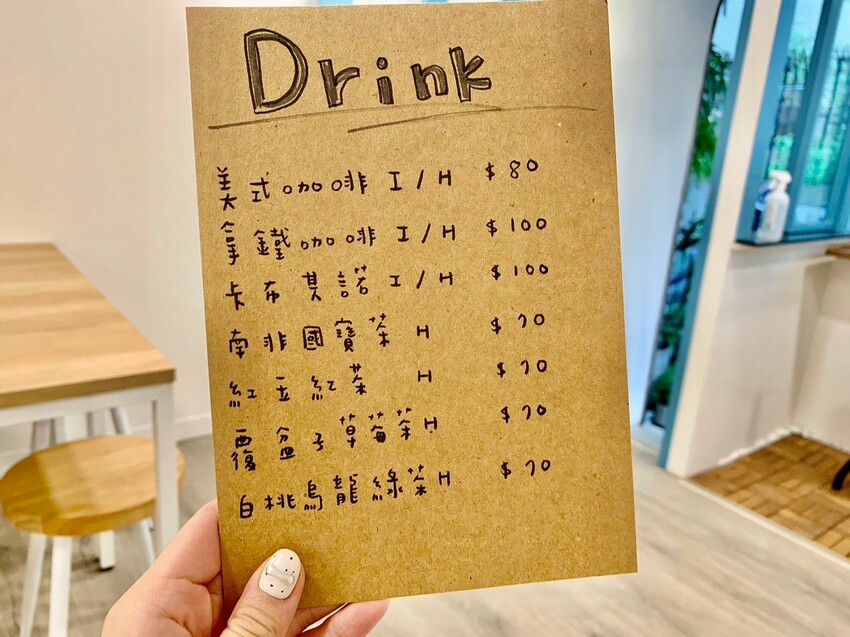 Drink
美式咖啡 I/H $80
拿鐵咖啡 I/H $100
卡布其諾 I/H $100
南非國寶茶 H $70
紅玉紅茶 H $70
覆盆子草莓茶 H $70
白桃烏龍綠茶 H $70